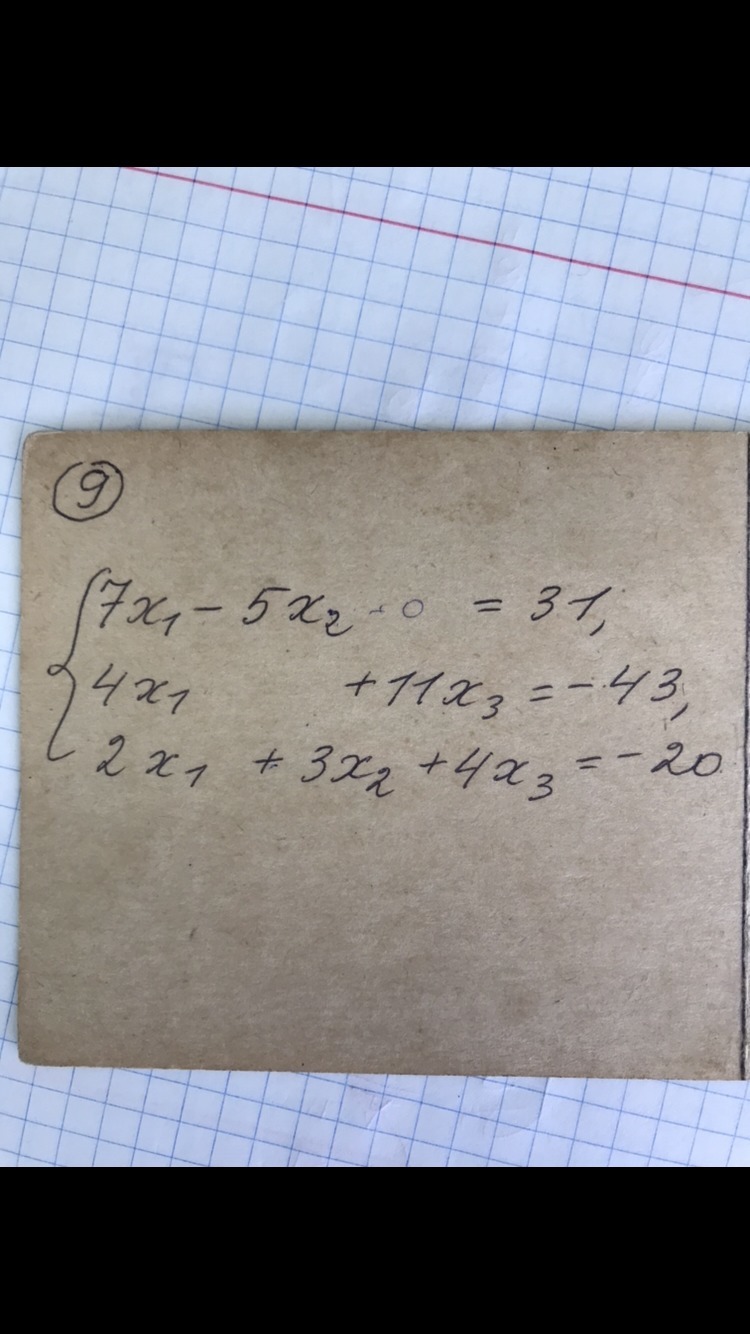 9
7x₁ - 5x₂ - 0 = 31,
4x₁ + 11x₃ = -43,
2x₁ + 3x₂ + 4x₃ = -20